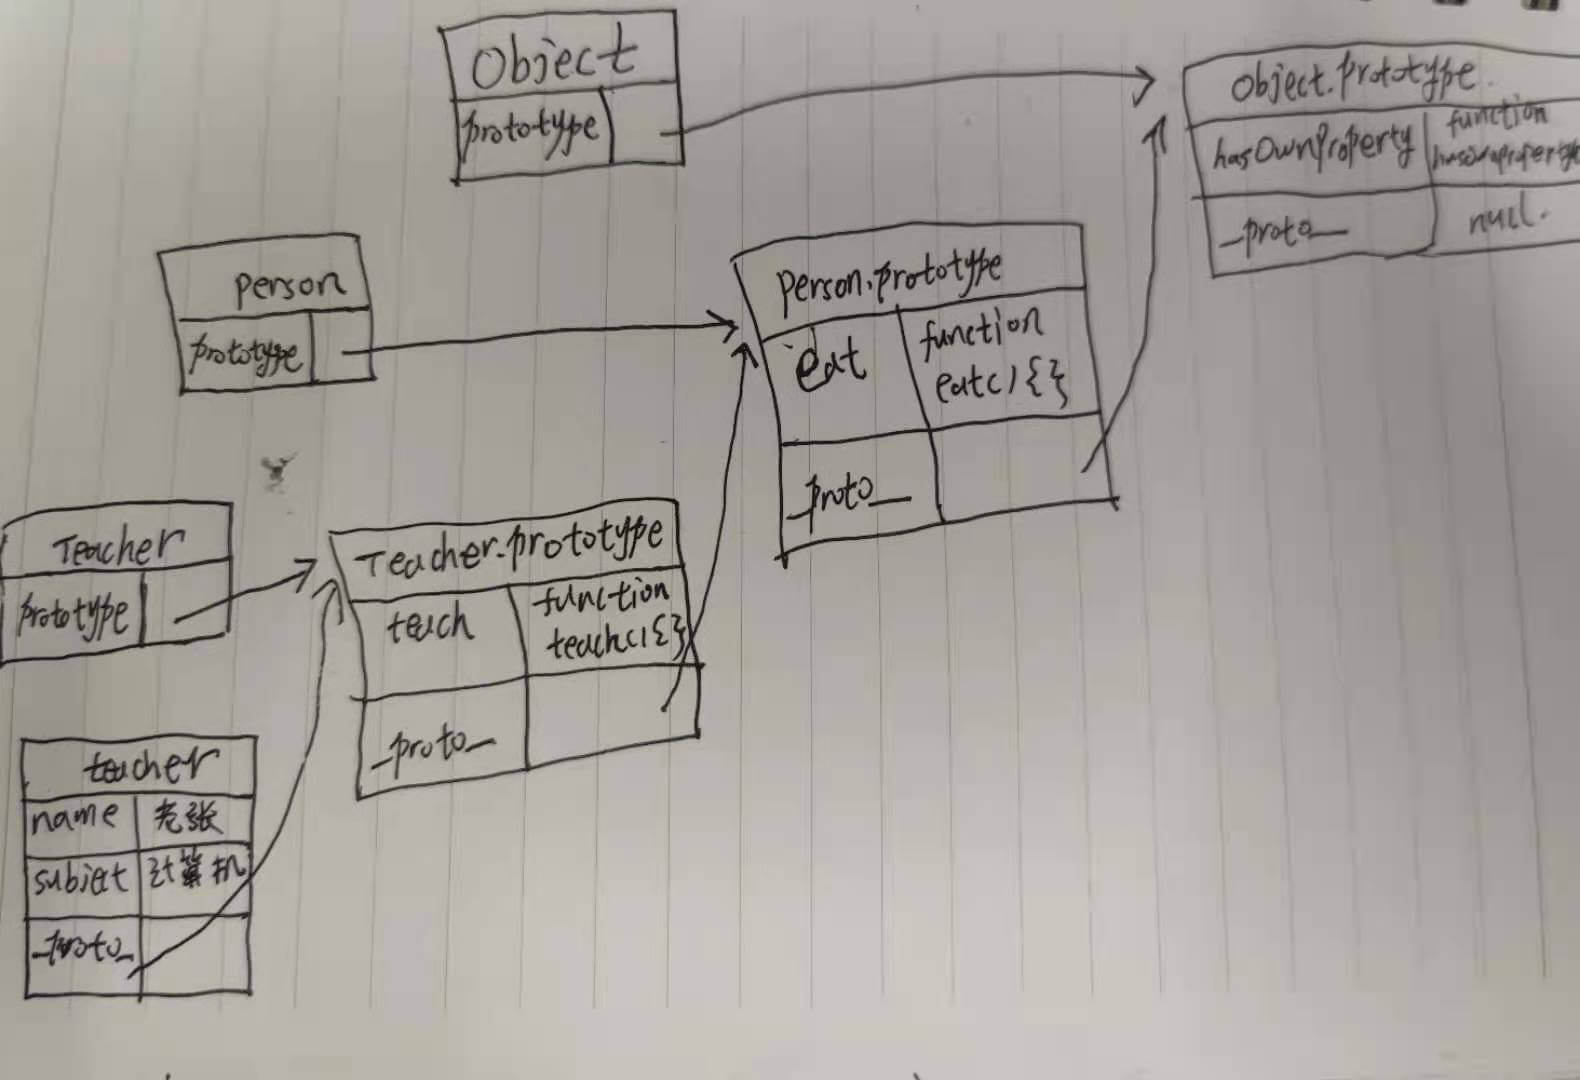 Object
prototype
Object.prototype.
hasOwnProperty
function
hasOwnproperty
_proto__
null.
person
prototype
person.prototype
eat
function
eat(){}
_proto__
Teacher
prototype
Teacher.prototype
teach
function
teach(){}
_proto_
teacher
name 老张
subject 计算机
_proto_